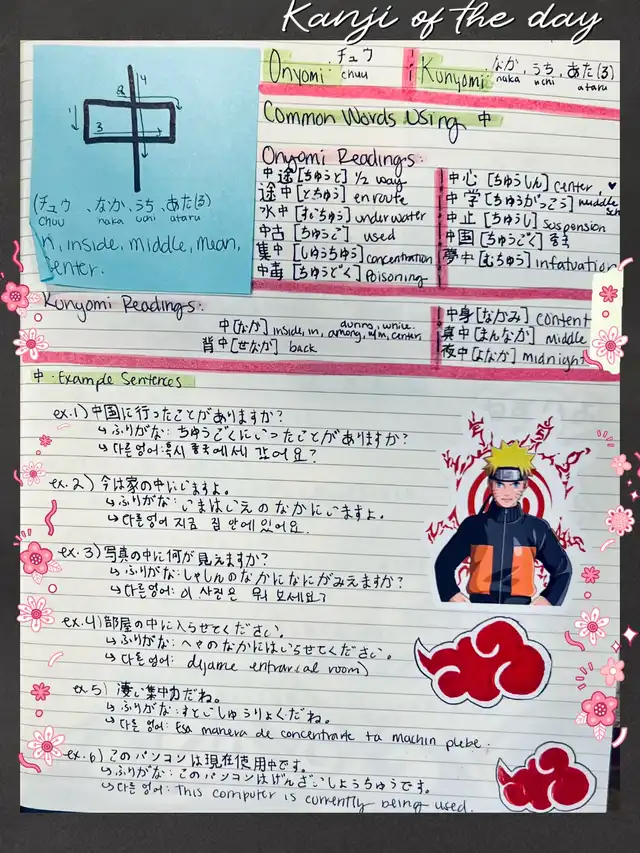 Kanji of the day
Onyomi チュウ chuu
Kunyomi なか、うち、あた(る) naka uchi ataru
1 2 3 4
(チュウ、なか、うち、あた(る)
chuu naka uchi ataru
in, inside, middle, mean,
center.
Common Words Using 中
Onyomi Readings:
中途 [ちゅうと] 1/2 way
途中 [とちゅう] en route
水中 [すいちゅう] underwater
中古 [ちゅうこ] used
集中 [しゅうちゅう] concentration
中毒 [ちゅうどく] Poisoning
中心 [ちゅうしん] center, ♥
中学 [ちゅうがっこう] middle sch
中止 [ちゅうし] suspension
中国 [ちゅうごく] 중국
夢中 [むちゅう] infatuation
Kunyomi Readings:
中 [なか] inside, in, among, during, while, center
背中 [せなか] back
中身 [なかみ] content
真中 [まんなか] middle
夜中 [よなか] midnight
中 · Example Sentences
ex.1) 中国に行ったことがありますか?
↳ ふりがな: ちゅうごくにいったことがありますか?
↳ 다른 언어: 혹시 중국에 가 갔어요?
ex.2) 今は家の中にいますよ。
↳ ふりがな: いまはいえのなかにいますよ。
↳ 다른 언어 지금 집 안에 있어요.
ex.3) 写真の中に何が見えますか?
↳ ふりがな: しゃしんのなかになにがみえますか?
↳ 다른 언어: 이 사진은 뭐 보세요?
ex.4) 部屋の中に入らせてください。
↳ ふりがな: へやのなかにはいらせてください。
↳ 다른 언어: dejame entrar(al room)
ex.5) 凄い集中力だね。
↳ ふりがな: すごいしゅうりょくだね。
↳ 다른 언어: Esa manera de concentrarte ta machin plebe.
ex.6) このパソコンは現在使用中です。
↳ ふりがな: このパソコンはげんざいしようちゅうです。
↳ 다른 언어: This computer is currently being used.